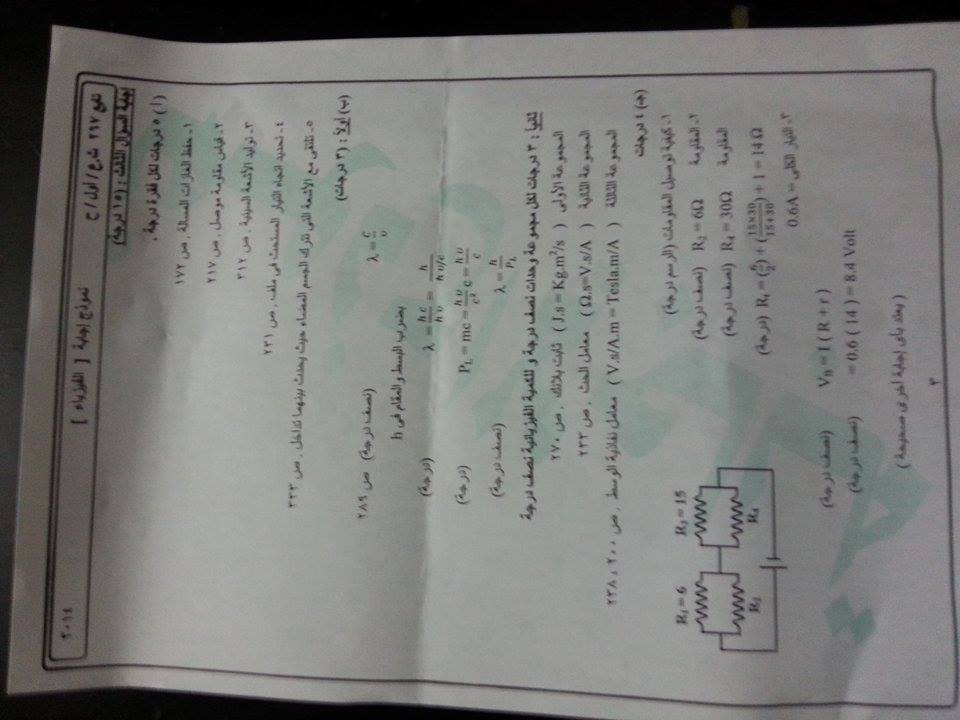 ٢٠١٤ نموذج إجابة [ الفيزياء ] تابع ٢٩٧ ث.ع / أول / ح
إجابة السؤال الثالث : (١٥ درجة)
( أ ) ٥ درجات لكل فقرة درجة .
١- حفظ الغازات المسالة . ص ١٧٢
٢- قياس مقاومة موصل . ص ٢١٧
٣- توليد الأشعة السينية . ص ٣١٢
٤- تحديد اتجاه التيار المستحث في ملف . ص ٢٣١
٥- تلتقي مع الأشعة التي تترك الجسم المضاء حيث يحدث بينهما تداخل . ص ٣٣٣
(ب) أولاً : (٣ درجات)
λ = c/υ (نصف درجة) ص ٢٨٩
بضرب البسط والمقام في h
λ = hc/hυ = h/(hυ/c) (درجة)
P_L = mc = (hυ/c²) c = hυ/c (درجة)
λ = h/P_L (نصف درجة)
ثانياً : ٣ درجات لكل مجموعة وحدات نصف درجة و للكمية الفيزيائية نصف درجة
المجموعة الأولى ( J.s = Kg.m²/s ) ثابت بلانك . ص ٢٧٠
المجموعة الثانية ( Ω.s=V.s/A ) معامل الحث . ص ٢٣٣
المجموعة الثالثة ( V.s/A.m = Tesla.m/A ) معامل نفاذية الوسط . ص ٢٠٠ ، ٢٣٨
(جـ) ٤ درجات
١- كيفية توصيل المقاومات (الرسم درجة)
R₁ = 6 R₃ = 15
R₂ R₄
٢- المقاومة R₂ = 6Ω (نصف درجة)
المقاومة R₄ = 30Ω (نصف درجة)
R_t = (6/2) + (15×30/15+30) + 1 = 14 Ω (درجة)
٣- التيار الكلي = 0.6A
V_B = I ( R + r ) (نصف درجة)
= 0.6 ( 14 ) = 8.4 Volt (نصف درجة)
( يعتد بأى إجابة أخرى صحيحة )
٣